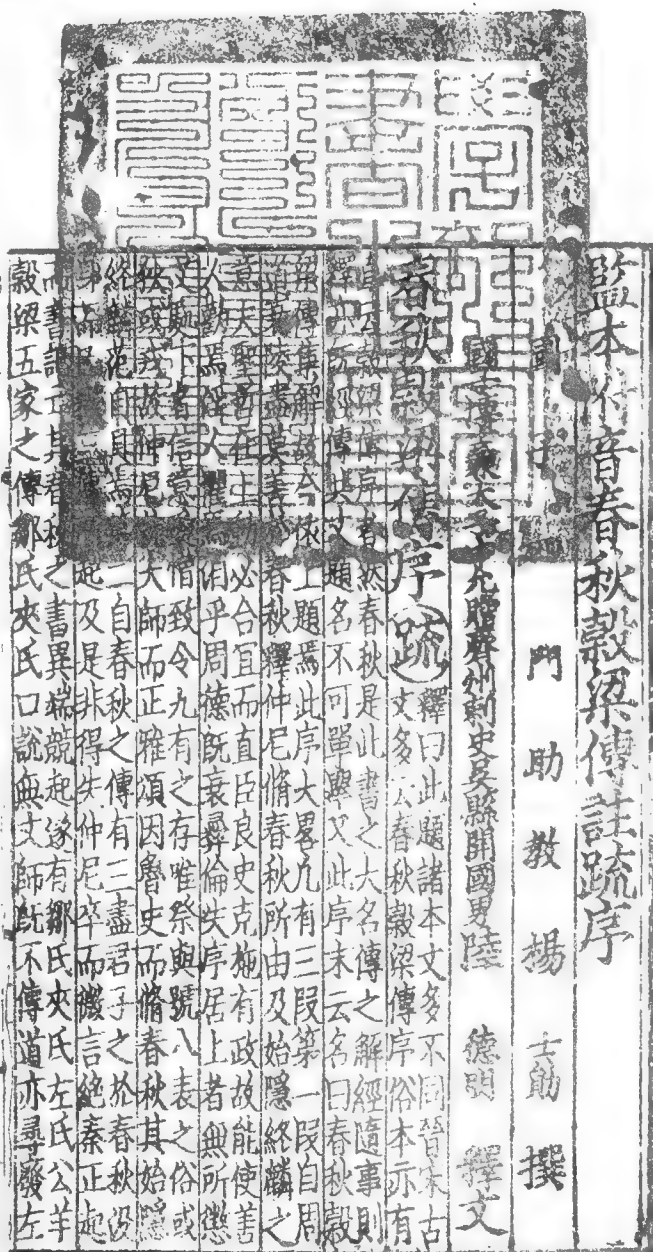 監本附音春秋穀梁傳註疏序
國子四門助教楊士勛撰
國子博士兼太子中允贈齊州刺史吳縣開國男陸德明釋文
春秋穀梁傳序疏
釋曰此題諸本文多不同晉宋古
文多云春秋穀梁傳序俗本亦有
直云穀梁傳序者然春秋是此書之大名傳之解經隨事則
釋亦既經傳共文題名不可單舉又此序末云名曰春秋穀
梁傳集解故今依上題焉此序大畧凡有三段第一段自周
道衰陵盡莫善於春秋釋仲尼脩春秋所由及始隱終麟之
意夫聖哲在上動必合宜而直臣良史克施有政故能使善
人勸焉淫人懼焉洎乎周德既衰彝倫失序居上者無所懲
艾馭下者信意愛憎致令九有之存唯祭與號八表之俗或
狄或戎故仲尼就大師而正雅頌因魯史而脩春秋其始隱
終麟范自具焉第二自春秋之傳有三盡君子之於春秋沒
身而已釋三傳所起及是非得失仲尼卒而微言絕秦正起
而書記亡其春秋之書異端競起遂有鄒氏夾氏左氏公羊
穀梁五家之傳鄒氏夾氏口說無文師既不傳道亦尋廢左